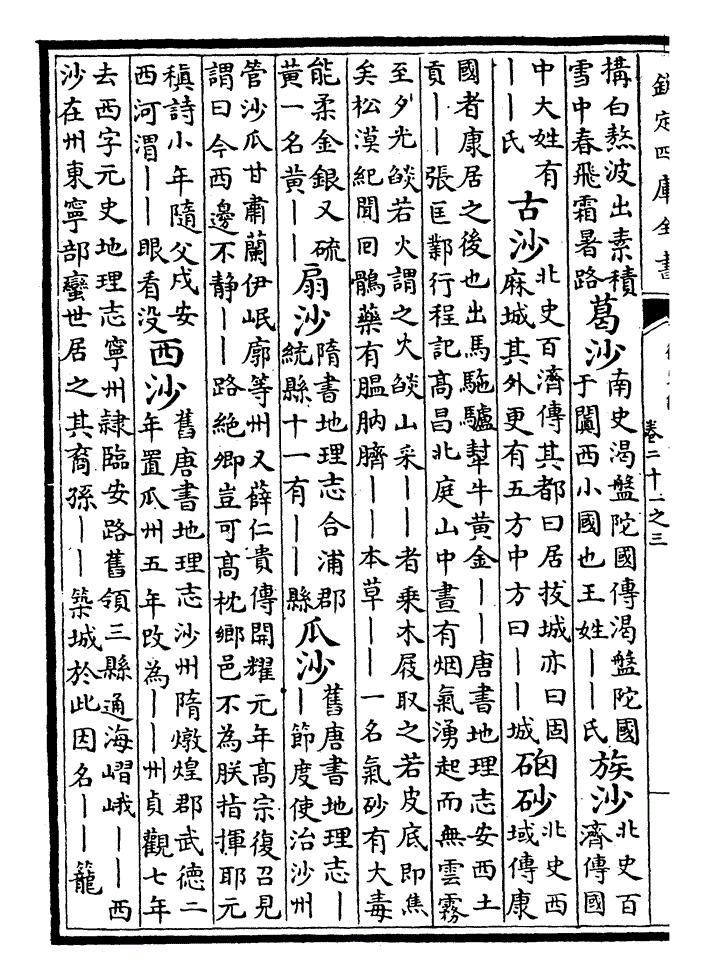 欽定四庫全書
卷二十一之三
搆白熬波出素積
雪中春飛霜暑路
葛沙
南史渴盤陀國傳渴盤陀國
于闐西小國也王姓——氏
族沙
北史百
濟傳國
中大姓有
——氏
古沙
北史百濟傳其都曰居拔城亦曰固
麻城其外更有五方中方曰——城
硇砂
北史西
域傳康
國者康居之後也出馬駞驢犎牛黃金——唐書地理志安西土
貢——張匡鄴行程記高昌北庭山中晝有烟氣湧起而無雲霧
至夕光燄若火謂之火燄山采——者乗木屐取之若皮底即焦
矣松漠紀聞回鶻藥有腽肭臍——本草——一名氣砂有大毒
能柔金銀又硫
黃一名黃——
扇沙
隋書地理志合浦郡
統縣十一有——縣
瓜沙
舊唐書地理志—
—節度使治沙州
管沙瓜甘肅蘭伊岷廓等州又薛仁貴傳開耀元年高宗復召見
謂曰今西邊不静——路絶卿豈可高枕鄉邑不為朕指揮耶元
稹詩小年隨父戍安
西河渭——眼看没
西沙
舊唐書地理志沙州隋燉煌郡武德二
年置瓜州五年改為——州貞觀七年
去西字元史地理志寧州隷臨安路舊領三縣通海嶍峨——西
沙在州東寧部蠻世居之其裔孫——築城於此因名——籠